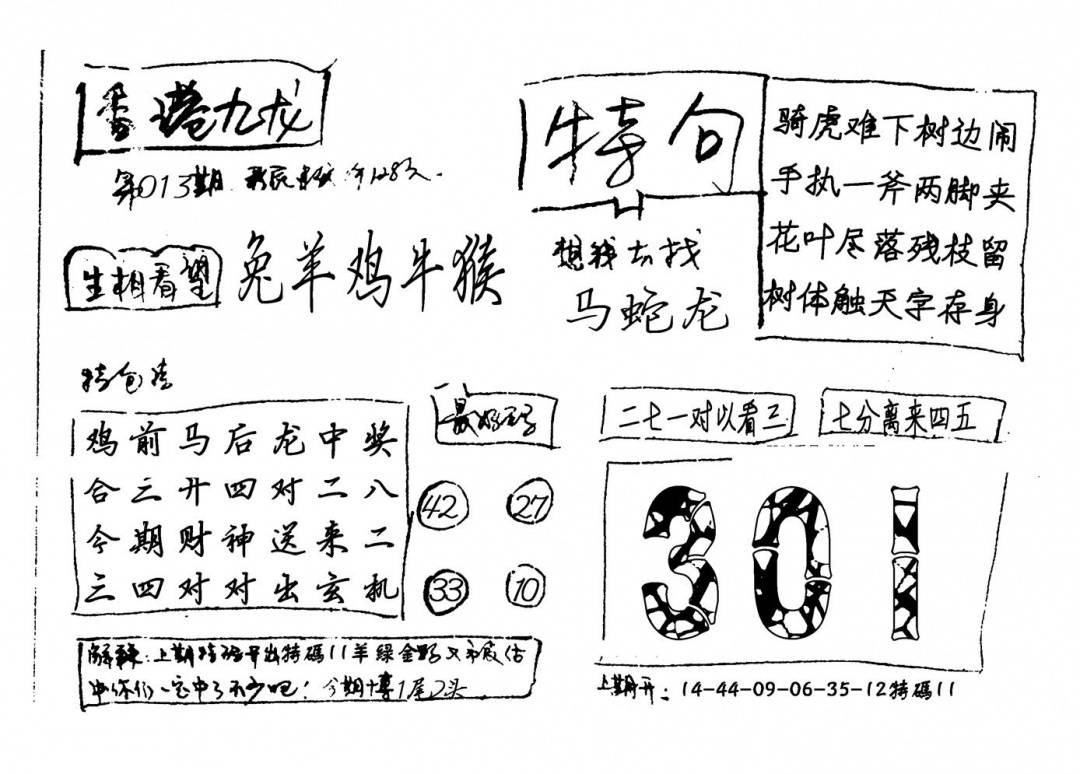 香港九龙
第013期
生相看望
兔羊鸡牛猴
特句
想我去找
马蛇龙
骑虎难下树边闹
手执一斧两脚夹
花叶尽落残枝留
树体触天字存身
特包
鸡前马后龙中奖
合三廾四对二八
今期财神送来二
三四对对出玄机
42 27
33 10
二七一对以看三
七分离来四五
301
解释：上期特码开出特碼11羊绿金野又
中你们一定中了不少吧！今期博1尾2头
上期开：14-44-09-06-35-12特碼11